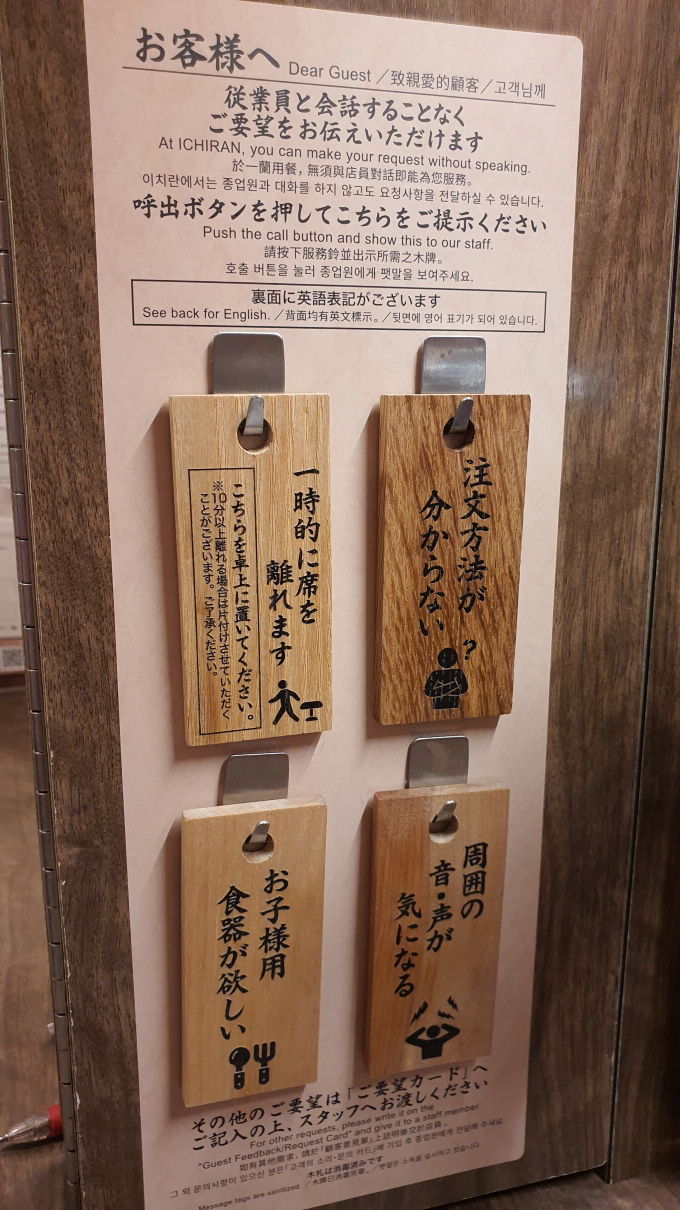 お客様へ Dear Guest ／致親愛的顧客／고객님께
従業員と会話することなく
ご要望をお伝えいただけます
At ICHIRAN, you can make your request without speaking.
於一蘭用餐，無須與店員對話即能為您服務。
이치란에서는 종업원과 대화를 하지 않고도 요청사항을 전달하실 수 있습니다.
呼出ボタンを押してこちらをご提示ください
Push the call button and show this to our staff.
請按下服務鈴並出示所需之木牌。
호출 버튼을 눌러 종업원에게 팻말을 보여주세요.
裏面に英語表記がございます
See back for English. ／背面均有英文標示。／뒷면에 영어 표기가 되어 있습니다.
一時的に席を
離れます
こちらを卓上に置いてください。
※10分以上離れる場合は片付けさせていただく
ことがございます。ご了承ください。
注文方法が
分からない
?
お子様用
食器が欲しい
周囲の
音・声が
気になる
その他のご要望は「ご要望カード」へ
ご記入の上、スタッフへお渡しください
For other requests, please write it on the
"Guest Feedback/Request Card" and give it to a staff member.
如有其他需求，請於「顧客意見單」上註明後交於店員。
그 외 문의사항이 있으신 분은「고객의 소리·문의 카드」에 기입 후 종업원에게 전달해 주세요.
木札は消毒済みです
Message tags are sanitized. ／木牌已消毒完畢。